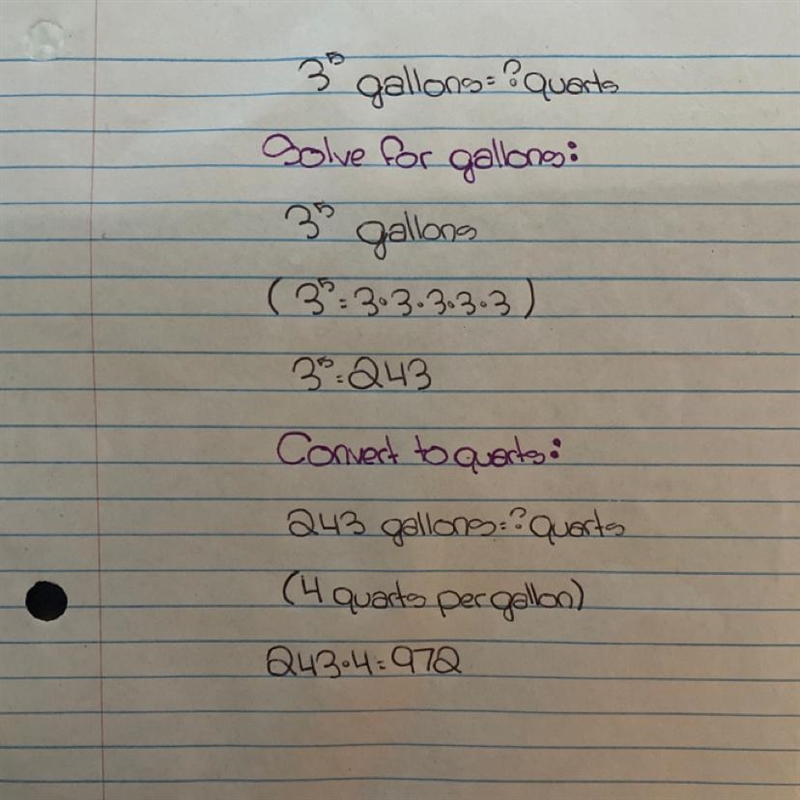 3⁵ gallons=? quarts
Solve for gallons:
3⁵ gallons
(3⁵=3·3·3·3·3)
3⁵=243
Convert to quarts:
243 gallons=? quarts
(4 quarts per gallon)
243·4=972